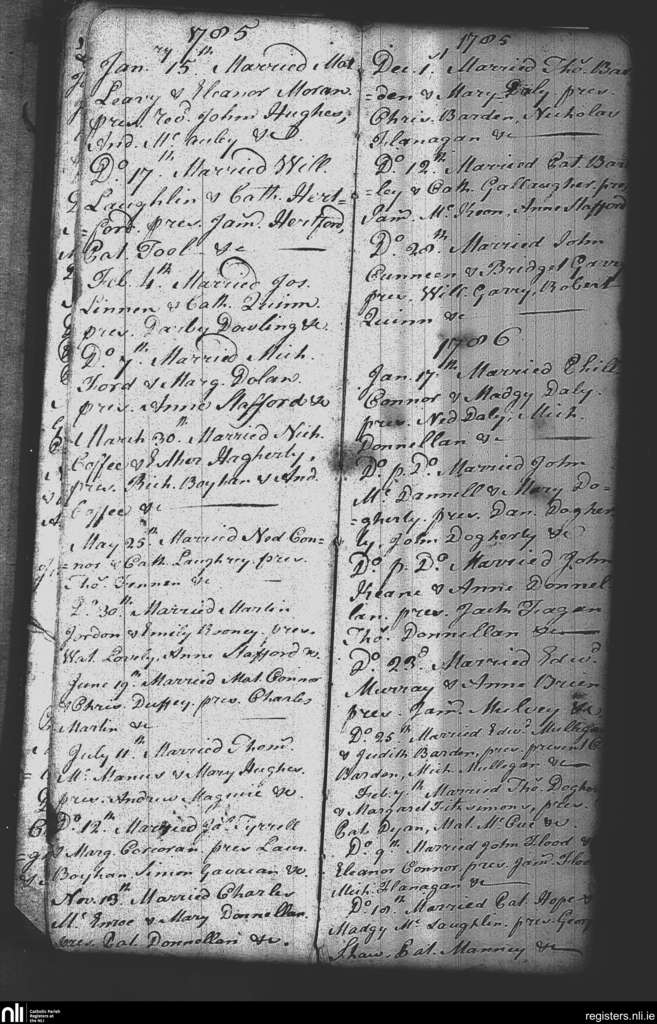 1785
Jan.ry 15th Married Mat
Leavy & Eleanor Moran.
pres. John Hughes,
And. Mc &c
Do. 17th Married Will.
Laughlin & Cath. Hert-
=ford. pres. Jam. Hertford,
Pat Tool &c
Feb. 4th Married Jos.
Linnen & Cath. Quinn.
pres. Darby Dowling &c.
Do. 7th Married Mich.
Ford & Marg. Dolan.
pres. Anne Stafford &c
March 30th Married Nich.
Coffee & Esther Hagherty,
pres. Rich. Boyhan & And.
Coffee &c
May 25th Married Ned Con-
=nor & Cath. Laughrey. pres.
Tho. &c
Do. 30th Married Martin
Jordon & Emily Rooney. pres.
Wat. Lovely, Anne Stafford &c.
June 19th Married Mat. Connor
& Chris. Duffey. pres. Charles
Martin &c
July 11th Married Thom.
Mc. Manus & Mary Hughes.
pres. Andrew Maguire &c.
Do. 12th Married Jas. Tyrrell
& Marg. Corcoran pres Lau.
Boyhan Simon &c.
Nov. 13th Married Charles
Mc. Enroe & Mary Donnellan.
pres. Pat. Donnellan &c.
1785
Dec. 1st Married Tho. Bar
=den & Mary Daly pres.
Chris. Barden, Nicholas
Flanagan &c
Do. 12th Married Pat. Bar
=ley & Cath. Gallaugher, pres
Jam. Mc. Keon, Anne Stafford
Do. 28th Married John
Cunneen & Bridget Garry
pres. Will. Garry, Robert
Quinn &c
1786
Jan. 17th Married Phill.
Connor & Madgy Daly.
pres. Ned Daly, Mich.
Donnellan &c
Do. p. Do. Married John
Mc. Dannell & Mary Do-
=gherty. pres. Dan. Dogher
ty, John Dogherty &c
Do. p. Do. Married John
Keane & Anne Donnel
lan. pres. Jach Fagan
Tho. Donnellan &c
Do. 23d. Married Edwd.
Murray & Anne Brien
pres. Jam. Mulvey &c
Do. 25th Married Edwd. Mulligan
& Judith Barden, pres. present C
Barden, Mich. Mulligan &c
Feb. 7th Married Tho. Dogher
& Margaret Fitzsimons, pres.
Pat. Dyan, Mat. Mc. Cue &c.
Do. 9th Married John Flood &
Eleanor Connor. pres. Jam. Floo
Mich. Flanagan &c
Do. 18th Married Pat. Hope &
Madgy Mc. Laughlin. pres. Georg
Shaw, Pat. Manney &c
nli
Catholic Parish
Registers at
the NLI
registers.nli.ie